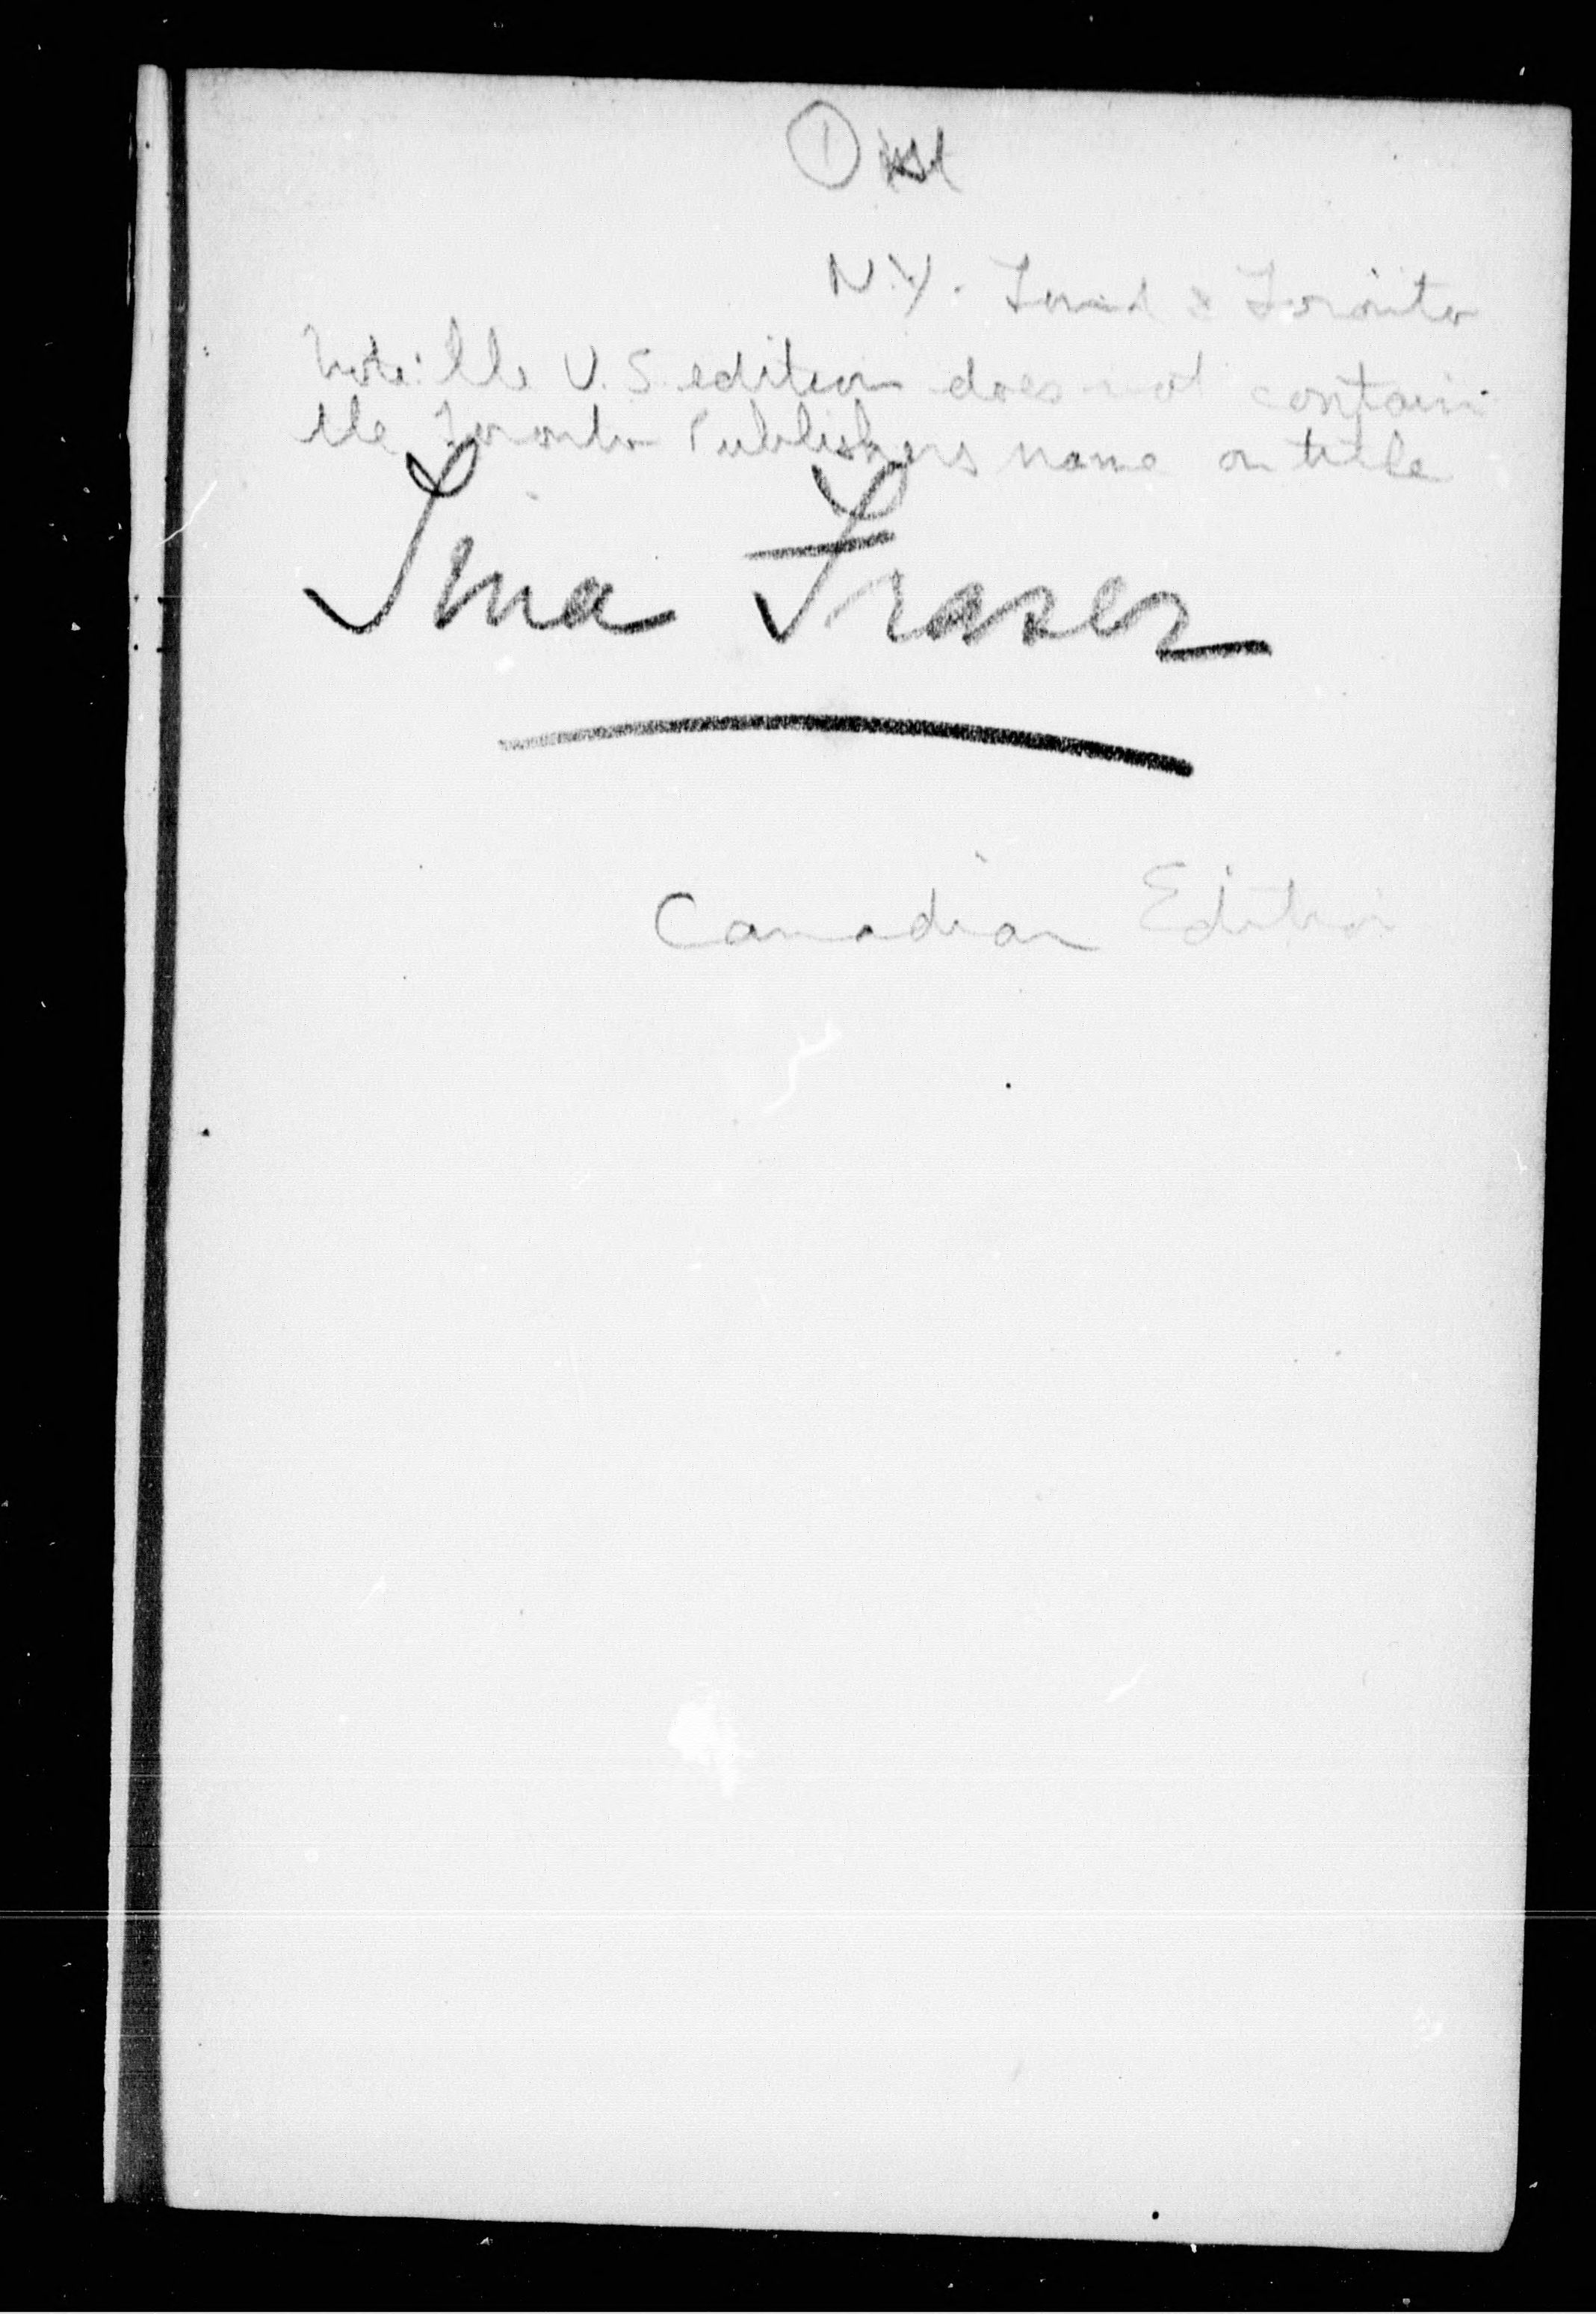 ①
N.Y. Lond & Toronto
Note: the U.S. edition does not contain
the Toronto Publishers name on title
Ina Fraser
Canadian Edition